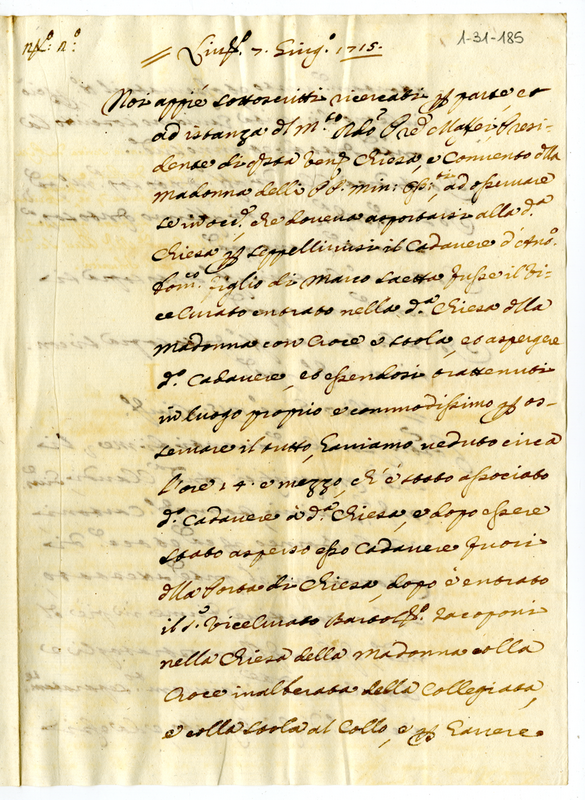 1-31-185
7. Giug.º 1715.
Noi appiè sottoscritti ricercati p parte et
ad istanza dl m.to Rdo Pre Mattei Presi-
dente di qsta Ven. Chiesa, e Convento dlla
Madonna delli PP. Min: Oss:ti, ad osservare
se in occ.e che doveva asportarsi alla d.ª
Chiesa p seppellirvisi il Cadavere d'Ant.º
Dom.º figlio di Marco Saetta fusse il Vi-
ce Curato entrato nella d.ª Chiesa dlla
Madonna con Croce e stola, et aspergere
d.º Cadavere, et essendosi trattenuti
in luogo proprio e commodissimo p os-
servare il tutto, haviamo veduto circa
l'ore 14. e mezzo, ch'è stato associato
d.º Cadavere à d.ª Chiesa, e dopo essere
stato asperso esso Cadavere fuori
dlla Porta di Chiesa, dopo è entrato
il S.r ViceCurato Jacoponi
nella Chiesa della Madonna colla
Croce inalberata della Collegiata,
e colla stola al Collo, e p havere